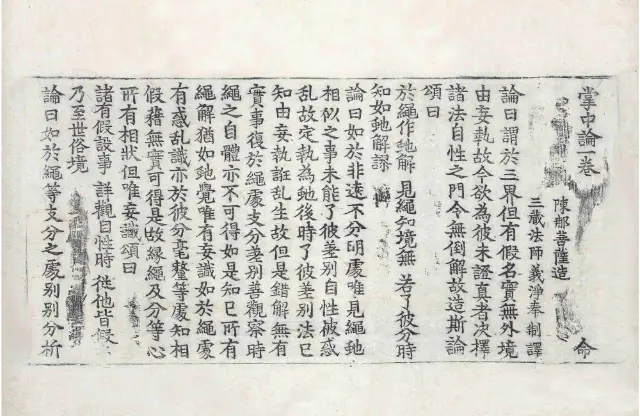 掌中論一卷 命
陳那菩薩造
三藏法師義淨奉 制譯
論曰謂於三界但有假名實無外境
由妄執故今欲為彼未證真者決擇
諸法自性之門令無倒解故造斯論
頌曰
於繩作虵解 見繩知境無 若了彼分時
知如虵解謬
論曰如於非遠不分明處唯見繩虵
相似之事未能了彼差別自性被惑
亂故定執為虵後時了彼差別法已
知由妄執誑亂生故但是錯解無有
實事復於繩處支分差別善觀察時
繩之自體亦不可得如是知已所有
繩解猶如虵覺唯有妄識如於繩處
有惑乱識亦於彼分毫氂等處知相
假藉無實可得是故緣繩及分等心
所有相狀但唯妄識頌曰
諸有假設事 詳觀自性時 從他皆假名
乃至世俗境
論曰如於繩等支分之處別別分析